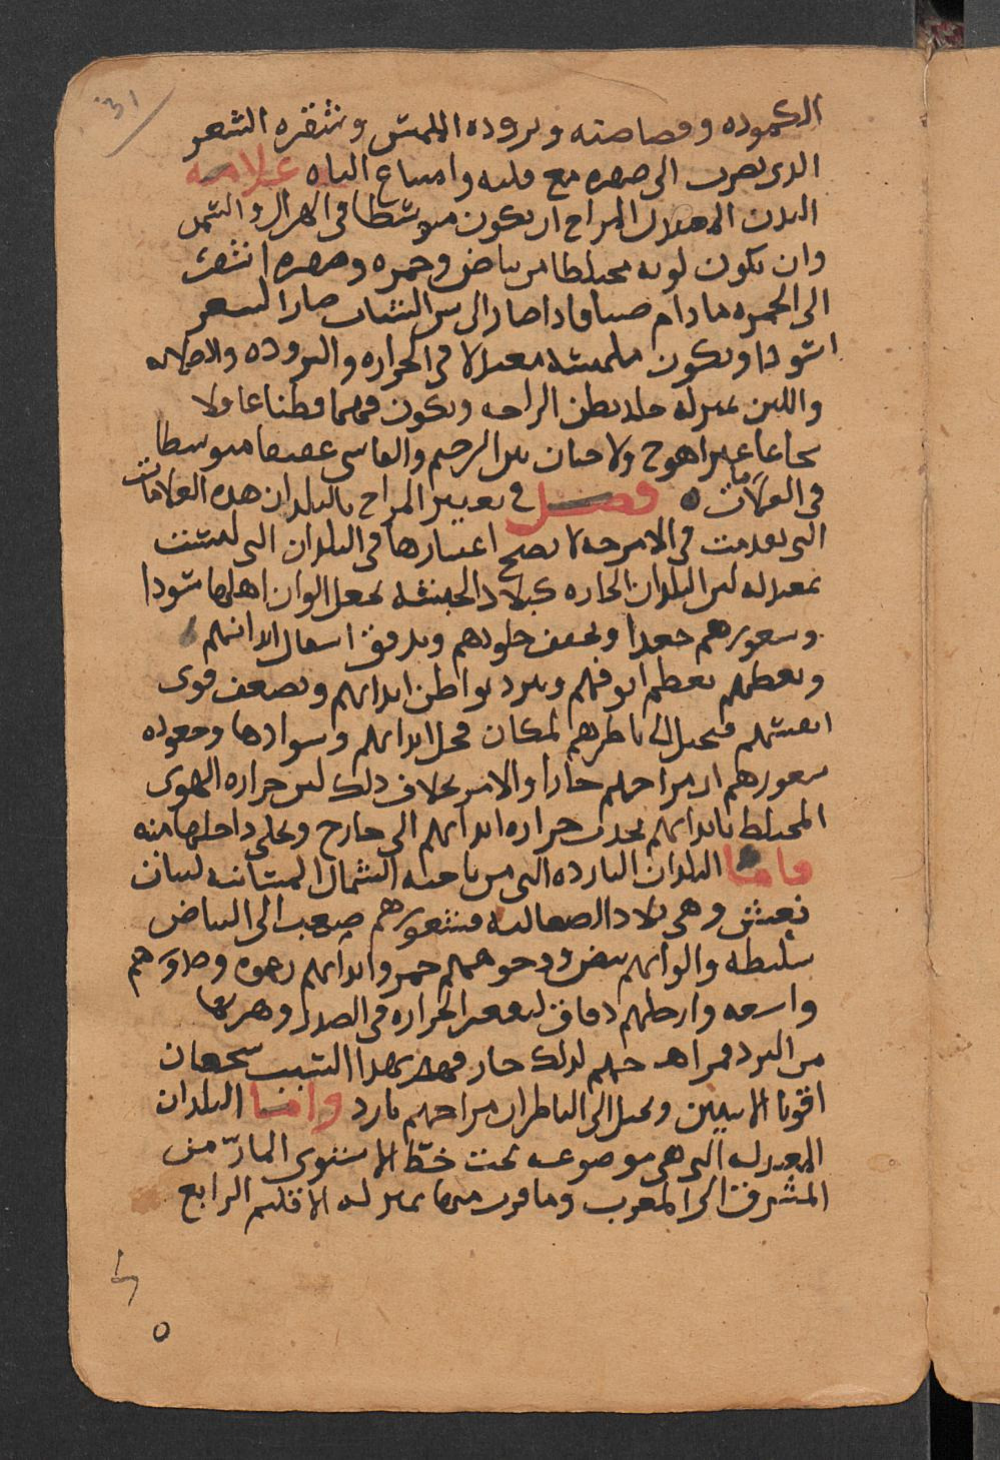 الكموده وفصاصته وبروده الملمس وشقره الشعر
الذى يضرب الى صفره مع قلته وامتناع الباه علامه
البدن المعتدل المزاج ان يكون متوسطا فى الهزال والسمن
وان يكون لونه مختلطا من بياض وحمره وصفره اشقر
الى الحمره ما دام صبيا فاذا صار الى سن الشباب صار الشعر
اسودا ويكون ملمسه معتدلا فى الحراره والبروده والصلابه
واللين بمنزله جلد بطن الراحه ويكون فهيما فطنا عاقلا
شجاعا غير اهوج ولا جبان بين الرحيم والقاسى عفيفا متوسطا
فى العلامات ٥ فصل فى تغيير المزاج بالبلدان هذه العلامات
التى تقدمت فى الامزجه لا يصح اعتبارها فى البلدان التى ليست
بمعتدله لان البلدان الحاره كبلاد الحبشه تجعل الوان اهلها سودا
وشعورهم جعدا وتجفف جلودهم وتدقق اسفال ابدانهم
وتعظم انوفهم وتبرد بواطن ابدانهم وتضعف قوى
انفسهم فيخيل الى ناظرهم لمكان قحل ابدانهم وسوادها وجعوده
شعورهم ان مزاجهم حارا والامر بخلاف ذلك لان حراره الهوى
المختلط بابدانهم تجذب حراره ابدانهم الى خارج وتخلى داخلها منه
واما البلدان البارده التى من ناحيه الشمال المسامته لبنات
نعش وهى بلاد الصقالبه فشعورهم صهب الى البياض
سبطه والوانهم بيض ووجوههم حمر وابدانهم رخوه وصدورهم
واسعه وارجلهم دقاق لتقعر الحراره فى الصدر وهربها
من البرد فمزاجهم لذلك حار فهم بهذا السبب شجعان
اقويا الانفس ويخيل الى الناظر ان مزاجهم بارد واما البلدان
المعتدله التى هى موضوعه تحت خط الاستوى المار من
المشرق الى المغرب وما قرب منها بمنزله الاقليم الرابع